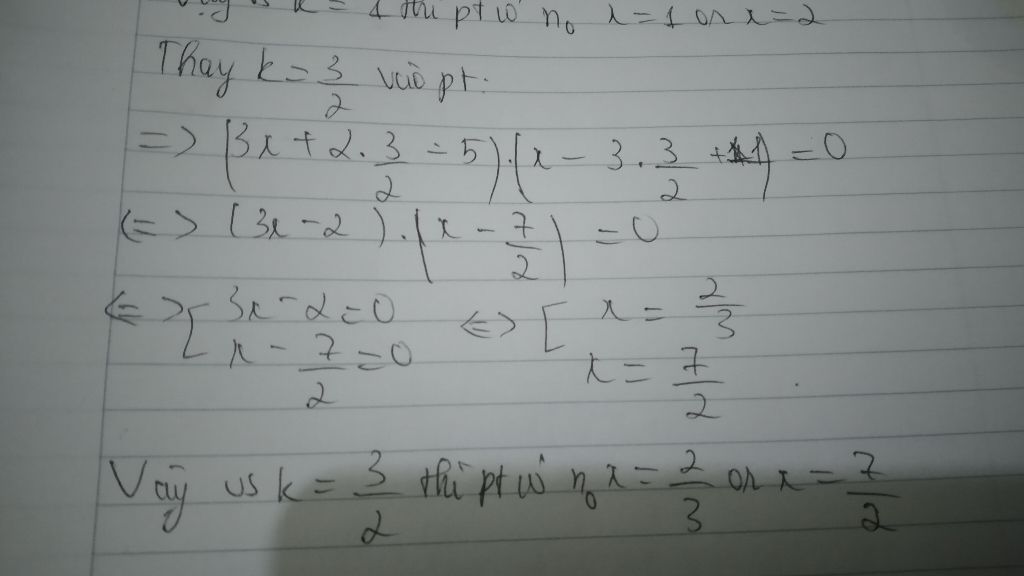 k = 1 thì pt có n₀ x = 1 or x = 2
Thay k = 3/2 vào pt:
=> (3x + 2. 3/2 - 5).(x - 3. 3/2 + 1) = 0
<=> (3x - 2).(x - 7/2) = 0
<=> [ 3x - 2 = 0 <=> [ x = 2/3
x - 7/2 = 0 x = 7/2
Vậy vs k = 3/2 thì pt có n₀ x = 2/3 or x = 7/2